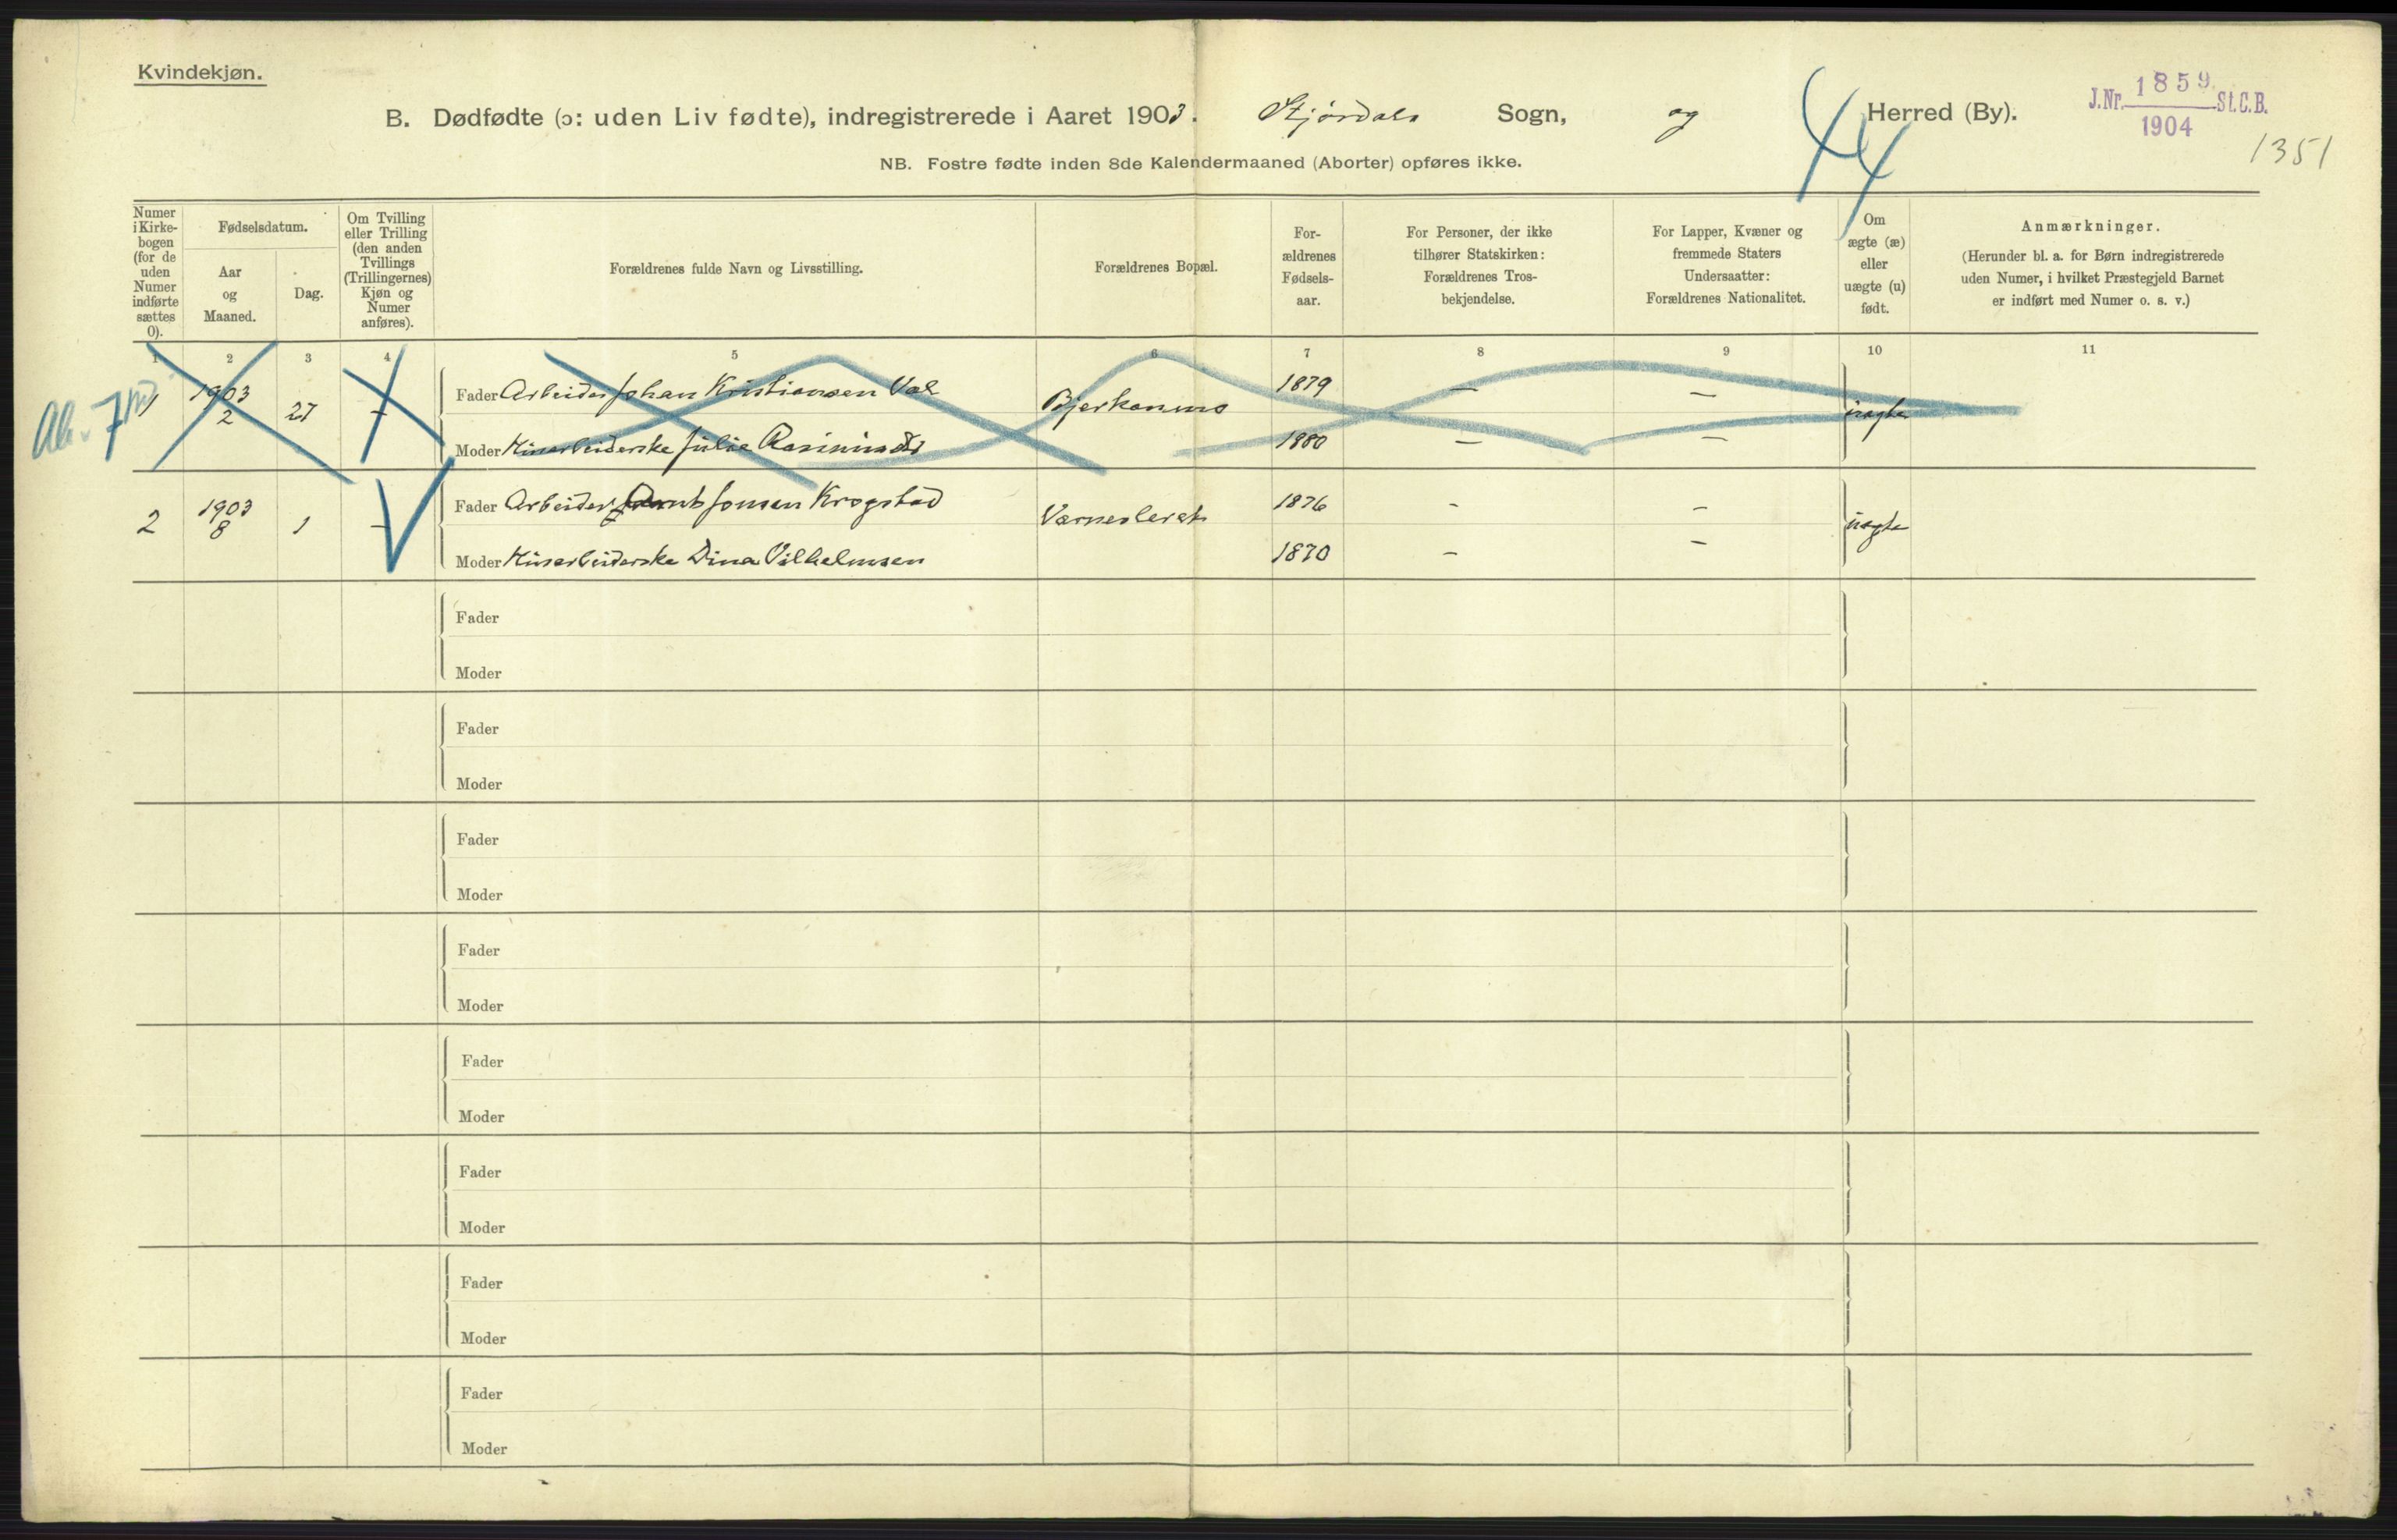 Kvindekjøn.
B. Dødfødte (ɔ: uden Liv fødte), indregistrerede i Aaret 1903. Stjørdals Sogn, og Herred (By).
J.Nr. 1859 St.C.B.
1904
1351
NB. Fostre fødte inden 8de Kalendermaaned (Aborter) opføres ikke.
Numer i Kirke-bogen (for de uden Numer indførte sættes 0).
Fødselsdatum.
Aar og Maaned.
Dag.
Om Tvilling eller Trilling (den anden Tvillings (Trillingernes) Kjøn og Numer anføres).
Forældrenes fulde Navn og Livsstilling.
Forældrenes Bopæl.
For-ældrenes Fødsels-aar.
For Personer, der ikke tilhører Statskirken: Forældrenes Tros-bekjendelse.
For Lapper, Kvæner og fremmede Staters Undersaatter: Forældrenes Nationalitet.
Om ægte (æ) eller uægte (u) født.
Anmærkninger.
(Herunder bl. a. for Børn indregistrerede uden Numer, i hvilket Præstegjeld Barnet er indført med Numer o. s. v.)
1 2 3 4 5 6 7 8 9 10 11
1 1903 2 27 - Fader Arbeider Johan Kristiansen Val 1879 - -
Moder Husarbeiderske Julie 1880 - - uægte
2 1903 8 1 - Fader Arbeider Arnt Jonsen Krogstad 1876 - -
Moder Husarbeiderske Dina Vilhelmsen 1870 - - uægte
Fader
Moder
Fader
Moder
Fader
Moder
Fader
Moder
Fader
Moder
Fader
Moder
Fader
Moder
Fader
Moder